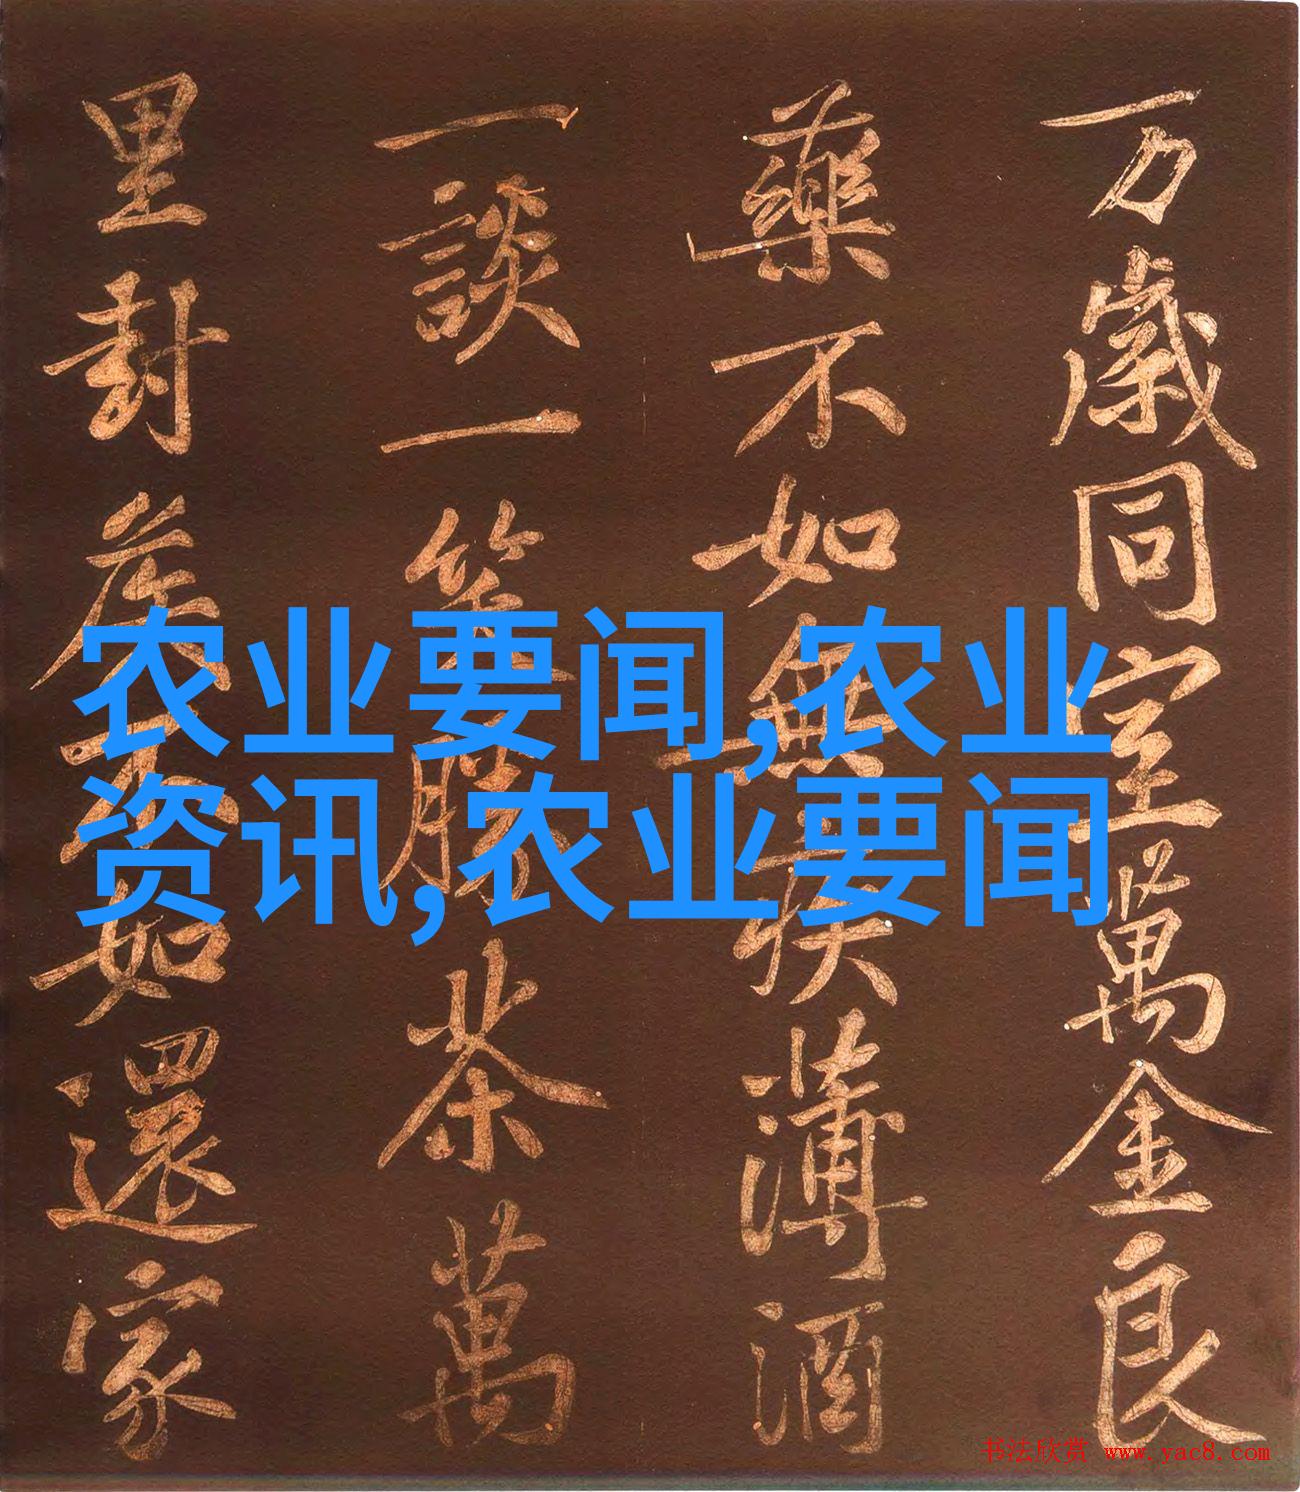 万歲同室萬金良
藥不如無疾薄酒
一談一笑勝茶萬
里封侯不如還家
农业要闻,农业
资讯,农业要闻
书法欣赏 www.yac8.com